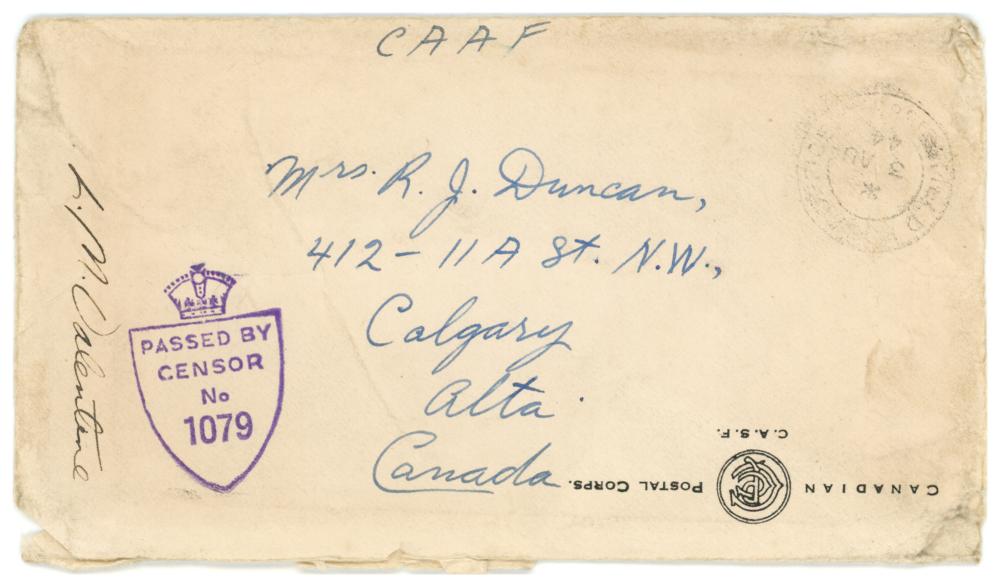 CAAF
Mrs. R. J. Duncan,
412-11 A St. N.W.,
Calgary
Alta.
Canada
L. M. Valentine
PASSED BY
CENSOR
No
1079
C.A.S.F.
CANADIAN POSTAL CORPS.
FIELD
AU
44